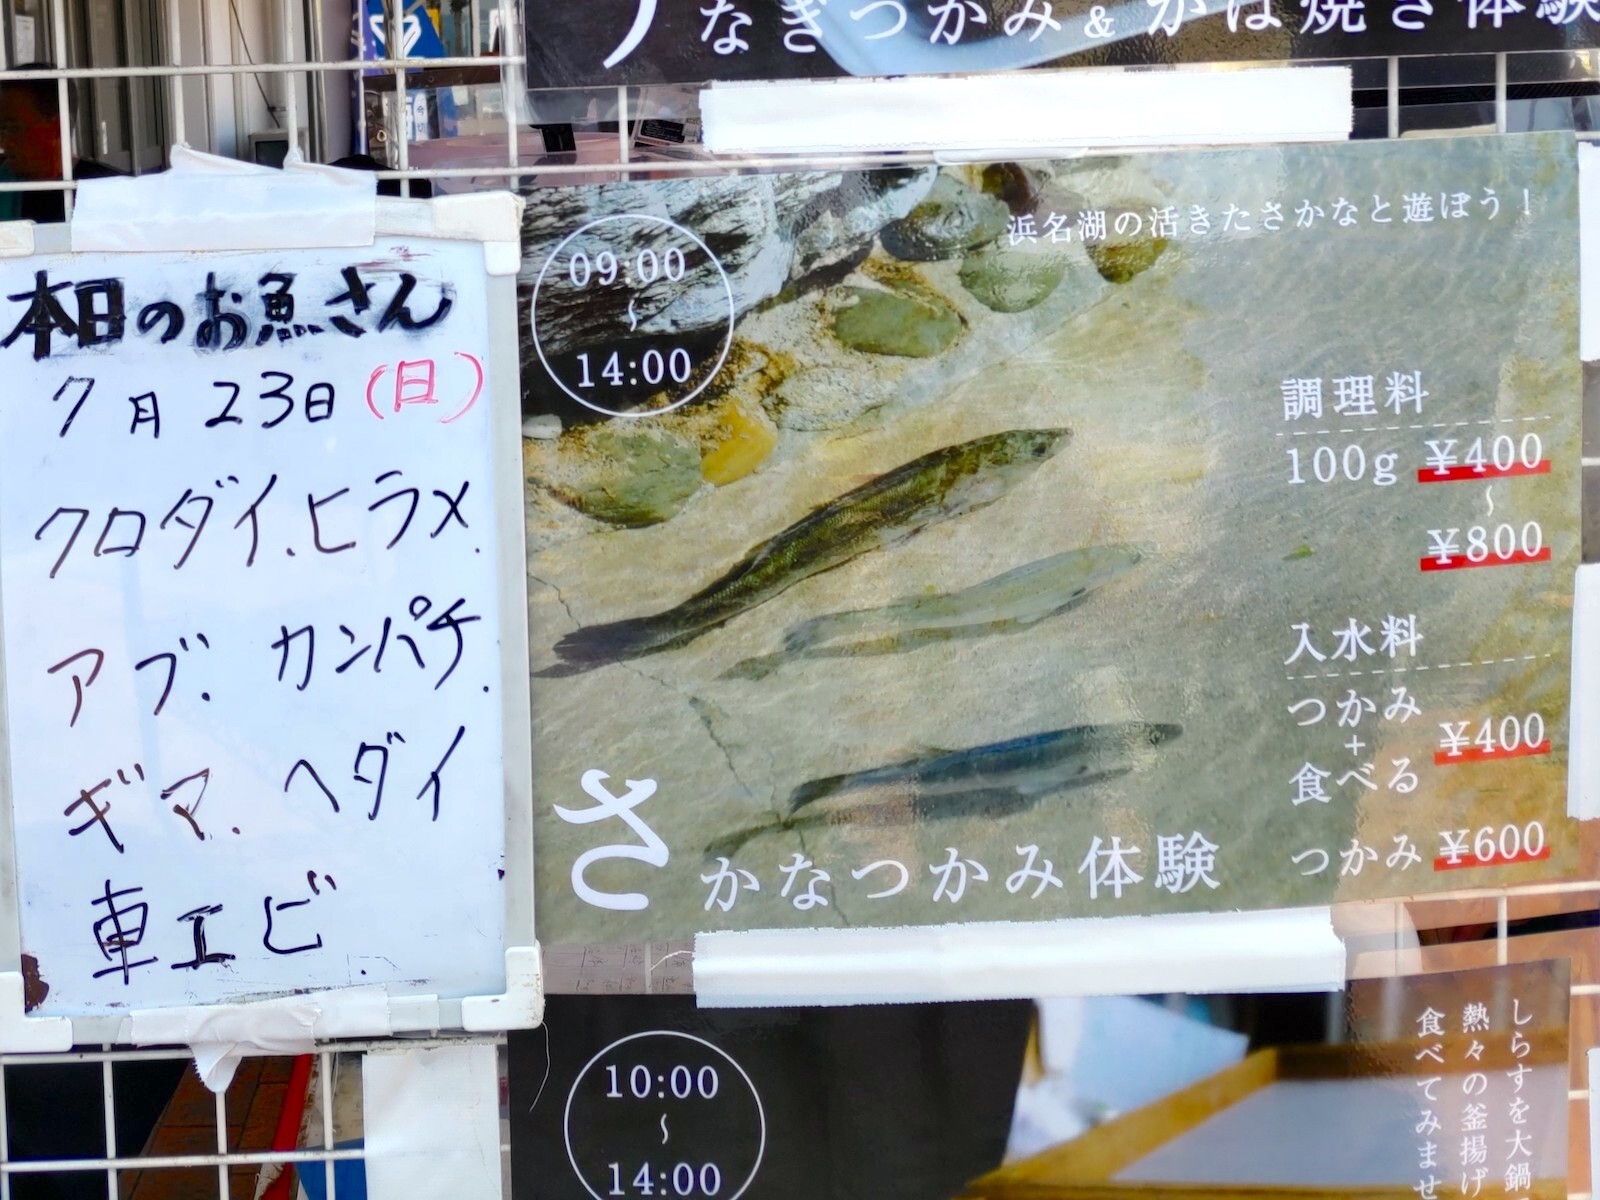 なぎつかみ&かば焼き体験
本日のお魚さん
7月23日(日)
クロダイ.ヒラメ.
アブ.カンパチ.
ギマ.ヘダイ
車エビ.
09:00
~
14:00
浜名湖の活きたさかなと遊ぼう!
調理料
100g ¥400
~
¥800
入水料
つかみ
+
食べる
¥400
つかみ ¥600
さかなつかみ体験
10:00
~
14:00
しらすを大鍋
熱々の釜揚げ
食べてみませ